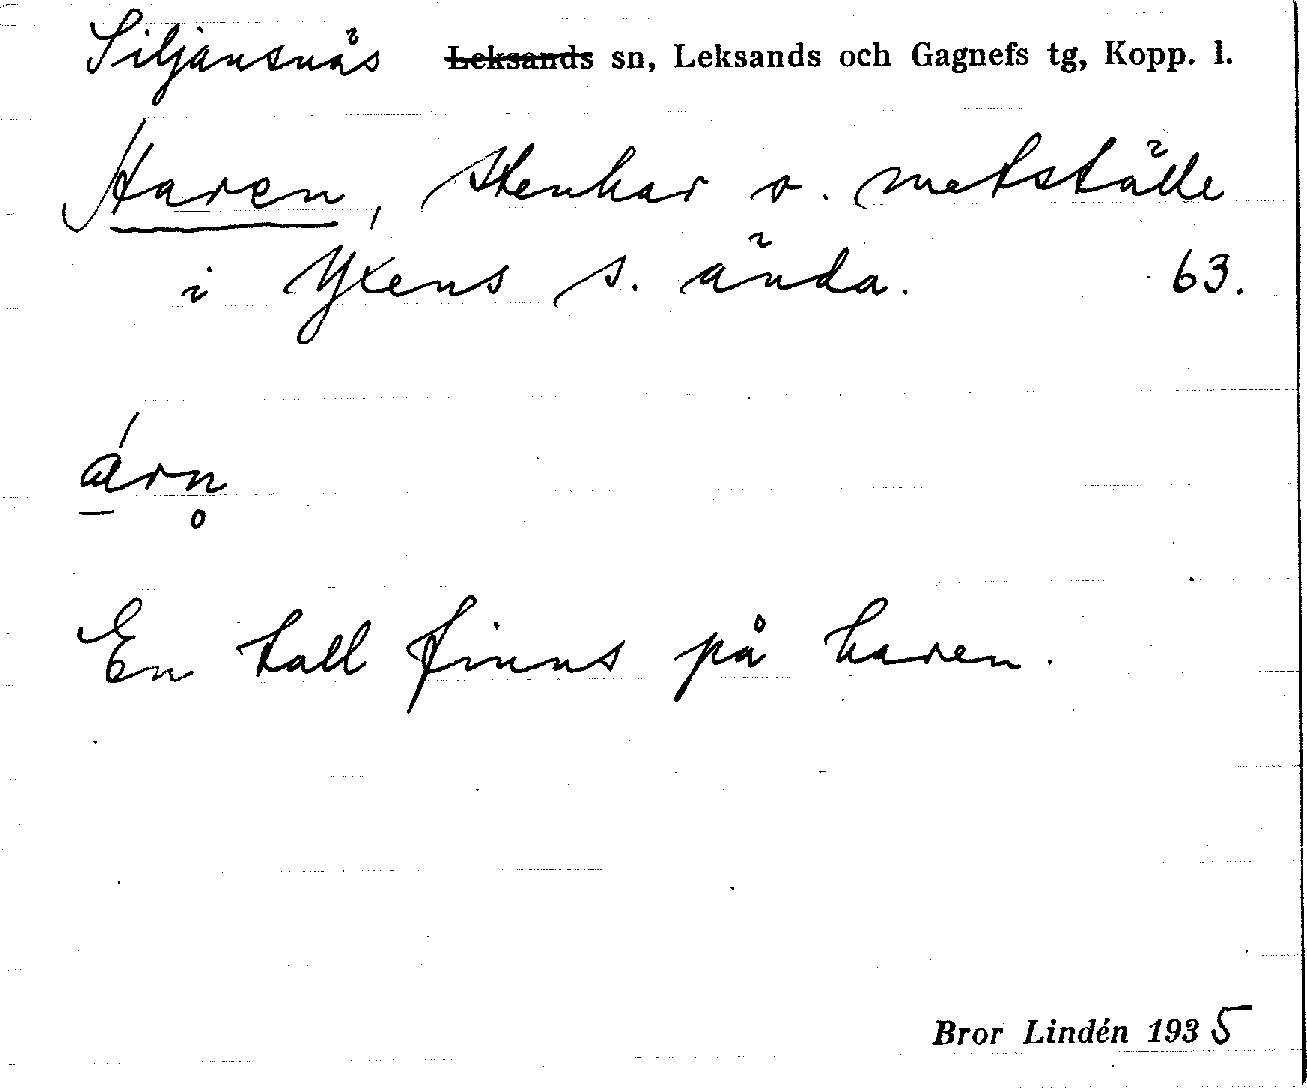 Siljansnäs ~~Leksands~~ sn, Leksands och Gagnefs tg, Kopp. l.
Haren, Stenhar o. metställe
i Yxens s. ända. 63.
árn̥
En tall finns på haren.
Bror Lindén 1935